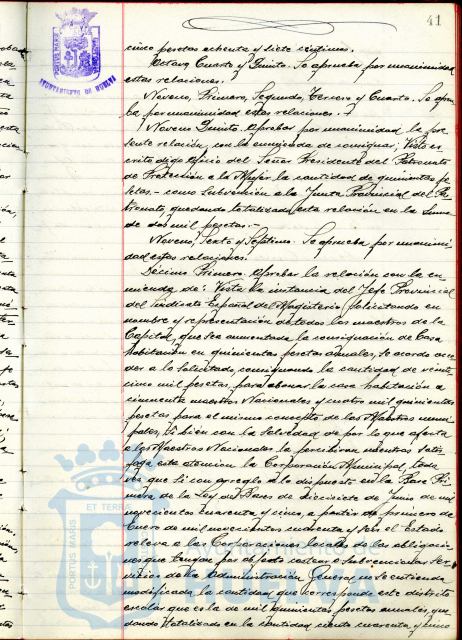 41
AYUNTAMIENTO DE HUELVA
cinco pesetas ochenta y siete céntimos.
Octavo, Cuarto y Quinto. Se aprueba por unanimidad
estas relaciones.
Noveno, Primero, Segundo, Tercero y Cuarto. Se aprue
ba por unanimidad estas relaciones.
Noveno Quinto. Aprobar por unanimidad la pre
sente relación, con la enmienda de consignar, Visto es
crito digo oficio del Señor Presidente del Patronato
de Protección a la Mujer la cantidad de quinientas pe
setas, - como subvención a la Junta Provincial del Pa
tronato, quedando totalizada esta relación en la suma
de dos mil pesetas.
Noveno, Sexto y Séptimo. Se aprueba por unanimi
dad estas relaciones.
Décimo Primero. Aprobar la relación con la en
mienda de: Vista la instancia del Jefe Provincial
del Sindicato Español del Magisterio, solicitando en
nombre y representación de todos los maestros de la
Capital, que sea aumentada la consignación de Casa
habitación en quinientas pesetas anuales, se acordo acce
der a lo solicitado, consignando la cantidad de veinte
cinco mil pesetas, para abonar la casa habitación a
cincuenta maestros Nacionales y cuatro mil quinientas
pesetas para el mismo concepto de las Maestras muni
pales, si bien con la salvedad de por lo que afecta
a los Maestros Nacionales la percibiran mientras satis
faga esta atención la Corporación Municipal, toda
vez que si con arreglo a lo dispuesto en la Base Pri
mera de la Ley de Bases de diecisiete de Junio de mil
novecientos cuarenta y cinco, a partir de primero de
Enero de mil novecientos cuarenta y seis el Estado
releva a las Corporaciones locales de las obligacio
nes que tengan por objeto costear o subvencionar Ser
vicios de la Administración General, se entienda
modificada la cantidad que corresponde este distrito
escolar que es la de mil quinientas pesetas anuales, que
dando totalizada en la cantidad ciento cuarenta y cinco
ET TERRAE
PORTUS MARIS
Ayuntamiento de